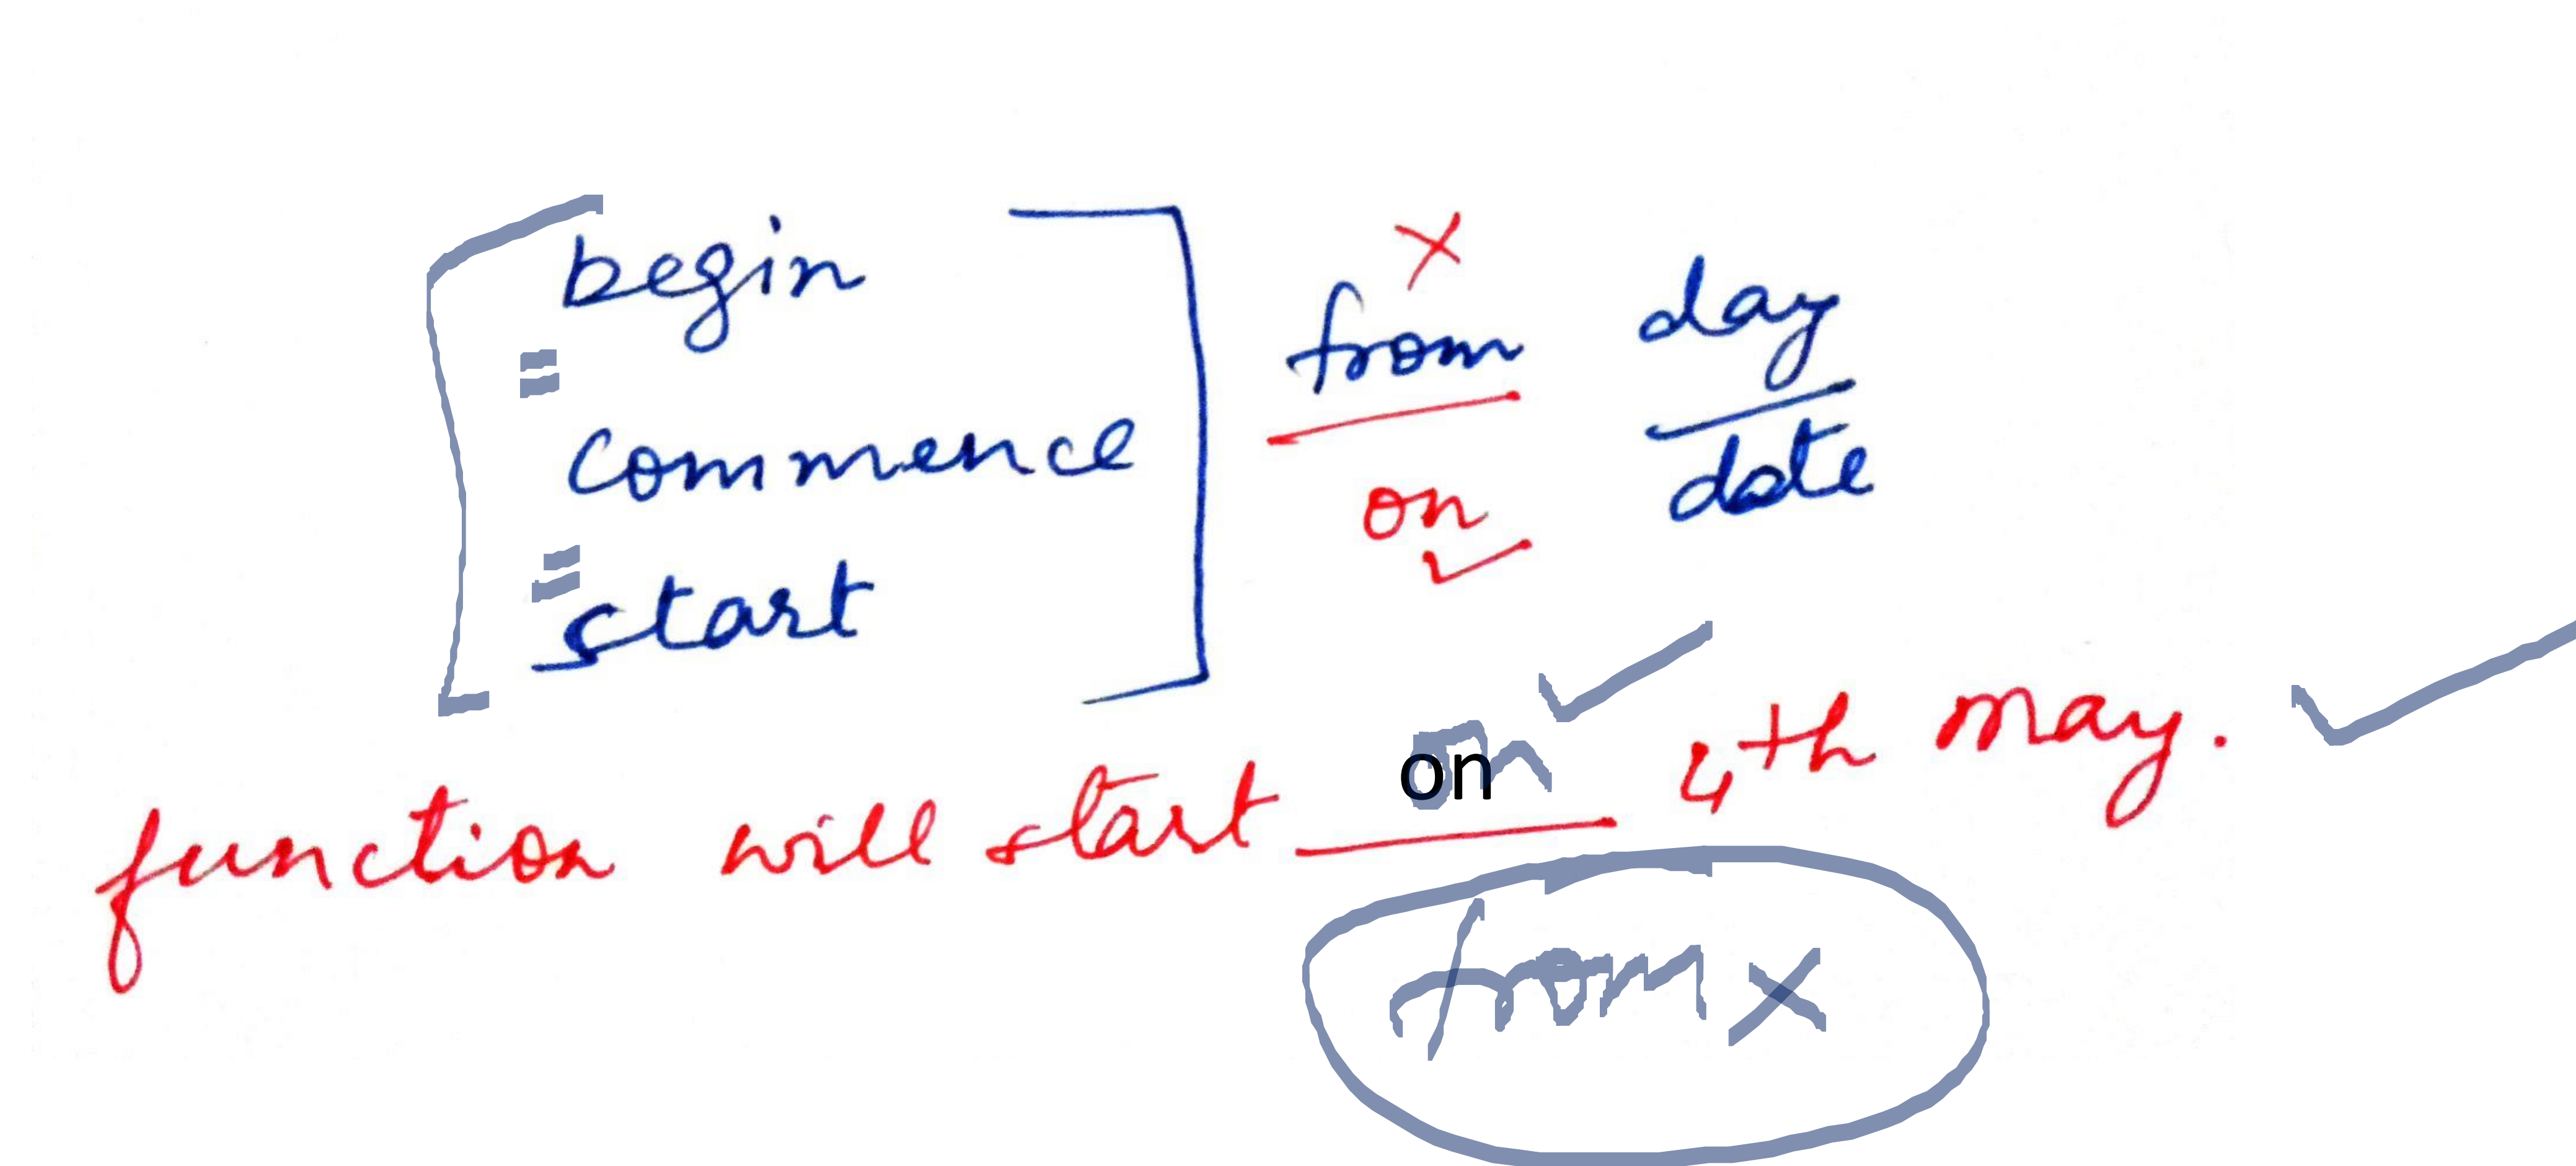 begin
=
commence
=
start
× from day
on ✓ date
function will start on on ✓ 4th may. ✓
from ×